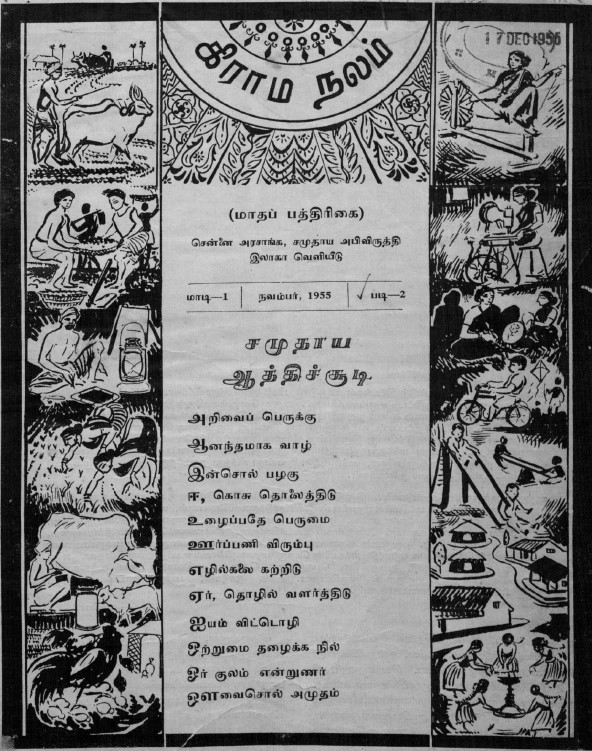 17 DEC 1956
கிராம நலம்
(மாதப் பத்திரிகை)
சென்னை அரசாங்க, சமுதாய அபிவிருத்தி
இலாகா வெளியீடு
மாடி—1 | நவம்பர், 1955 | ✓ படி—2
சமுதாய
ஆத்திச்சூடி
அறிவைப் பெருக்கு
ஆனந்தமாக வாழ்
இன்சொல் பழகு
ஈ, கொசு தொலைத்திடு
உழைப்பதே பெருமை
ஊர்ப்பணி விரும்பு
எழில்கலை கற்றிடு
ஏர், தொழில் வளர்த்திடு
ஐயம் விட்டொழி
ஒற்றுமை தழைக்க நில்
ஓர் குலம் என்றுணர்
ஔவைசொல் அமுதம்